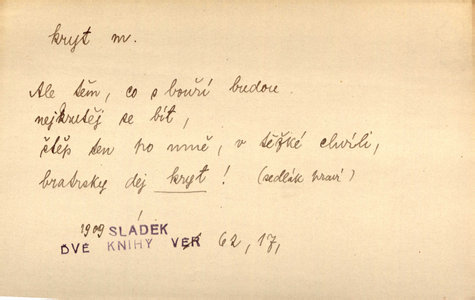 kryt m.
Ale těm, co s bouří budou
nejkrutěj se bít,
štěp ten po mně, v těžké chvíli,
bratrsky dej kryt! (sedlák praví)
1909 SLADEK
DVĚ KNIHY VER 62, 17,